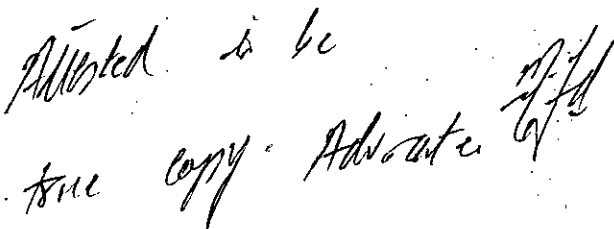 Attested to be
true copy. Advocate